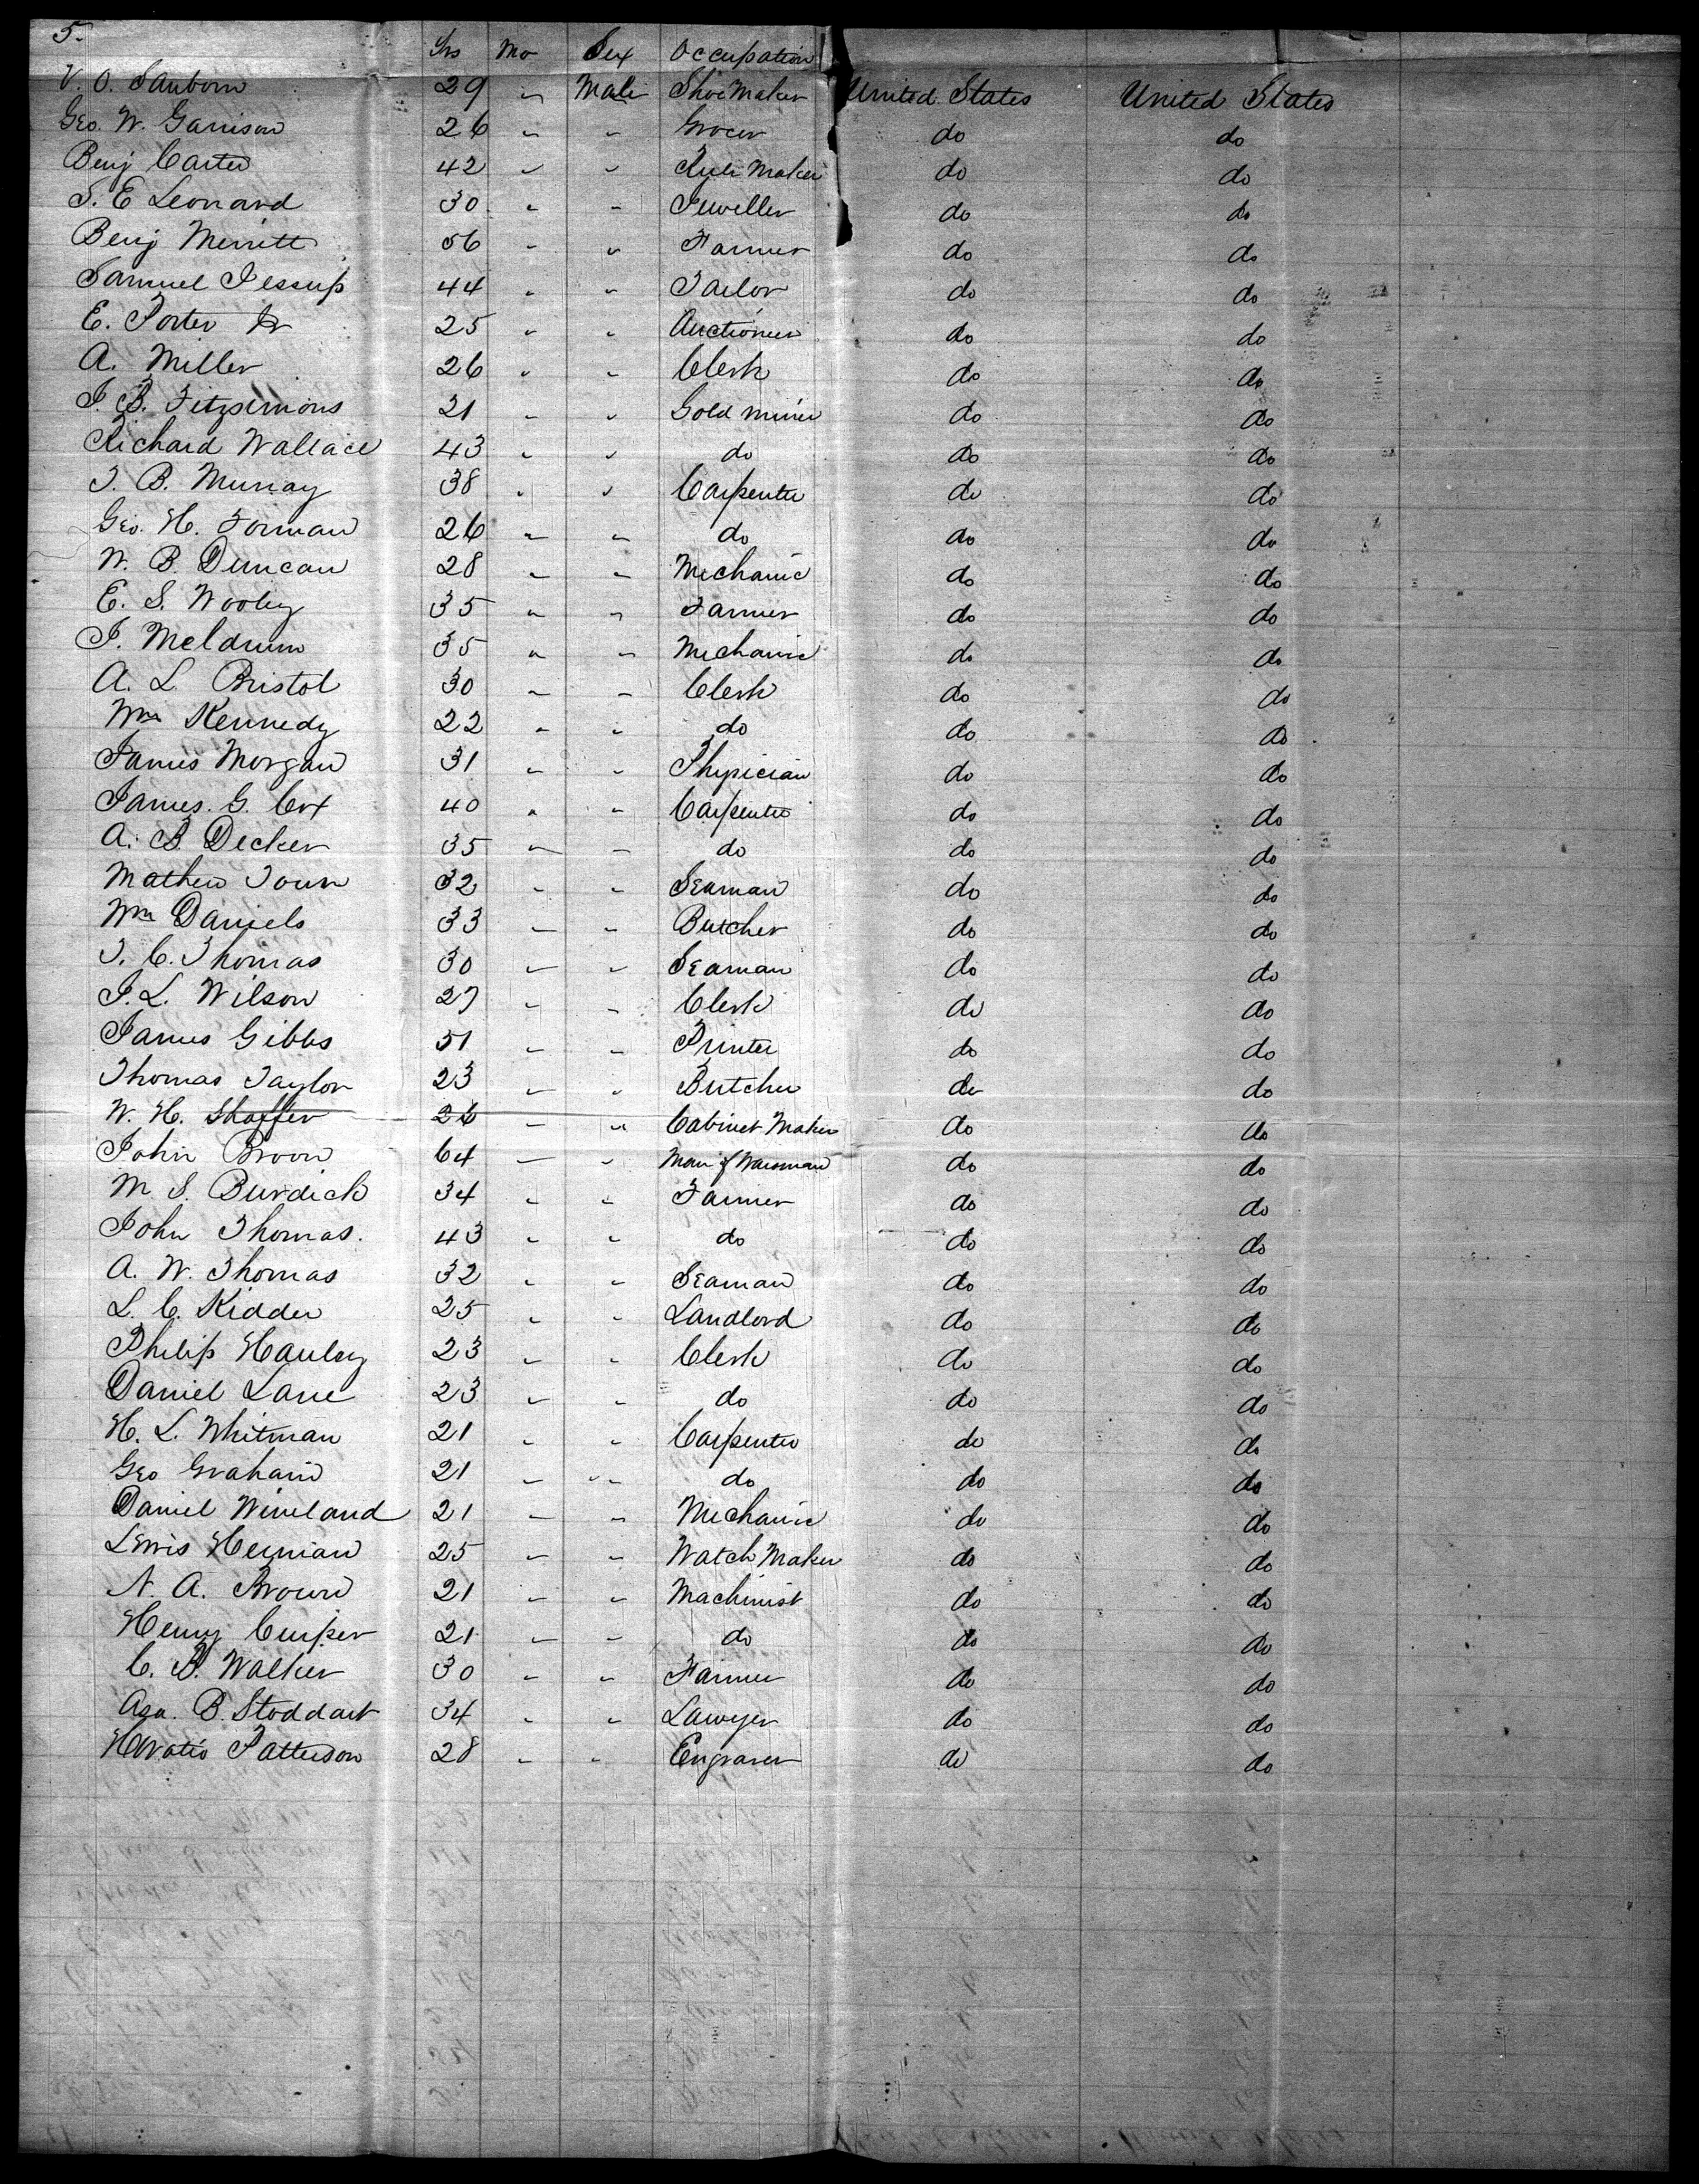 5.
Yrs Mo Sex Occupation
V. O. Sanborn 29 " Male Shoe Maker United States United States
Geo. W. Garrison 26 " " Grocer do do
Benj Carter 42 " " Rule Maker do do
S. E Leonard 30 " " Jeweller do do
Benj Merritt 56 " " Farmer do do
Samuel Jessup 44 " " Tailor do do
E. Porter Jr 25 " " Auctioneer do do
A. Miller 26 " " Clerk do do
J. B. Fitzsimons 21 " " Gold miner do do
Richard Wallace 43 " " do do do
T. B. Murray 38 " " Carpenter do do
Geo. H. Forman 26 " " do do do
W. B. Duncan 28 " " Mechanic do do
E. S. Wooley 35 " " Farmer do do
J. Meldrum 35 " " Mechanic do do
A. L. Bristol 30 " " Clerk do do
Wm Kennedy 22 " " do do do
James Morgan 31 " " Physician do do
James. G. Cox 40 " " Carpenter do do
A. B. Decker 35 " " do do do
Mathew 32 " " Seaman do do
Wm Daniels 33 " " Butcher do do
T. C. Thomas 30 " " Seaman do do
J. L. Wilson 27 " " Clerk do do
James Gibbs 51 " " Printer do do
Thomas Taylor 23 " " Butcher do do
W. H. Shaffer 26 " " Cabinet Maker do do
John Broon 64 " " Man of Warsman do do
M. S. Burdick 34 " " Farmer do do
John Thomas. 43 " " do do do
A. W. Thomas 32 " " Seaman do do
L. C. Kidder 25 " " Landlord do do
Philip Hanley 23 " " Clerk do do
Daniel Lane 23 " " do do do
H. L. Whitman 21 " " Carpenter do do
Geo Graham 21 " " do do do
Daniel Wineland 21 " " Mechanic do do
Lewis Herman 25 " " Watch Maker do do
N. A. Brown 21 " " Machinist do do
Henry 21 " " do do do
C. B. Walker 30 " " Farmer do do
Asa. B. Stoddart 34 " " Lawyer do do
Horatio Patterson 28 " " Engraver do do